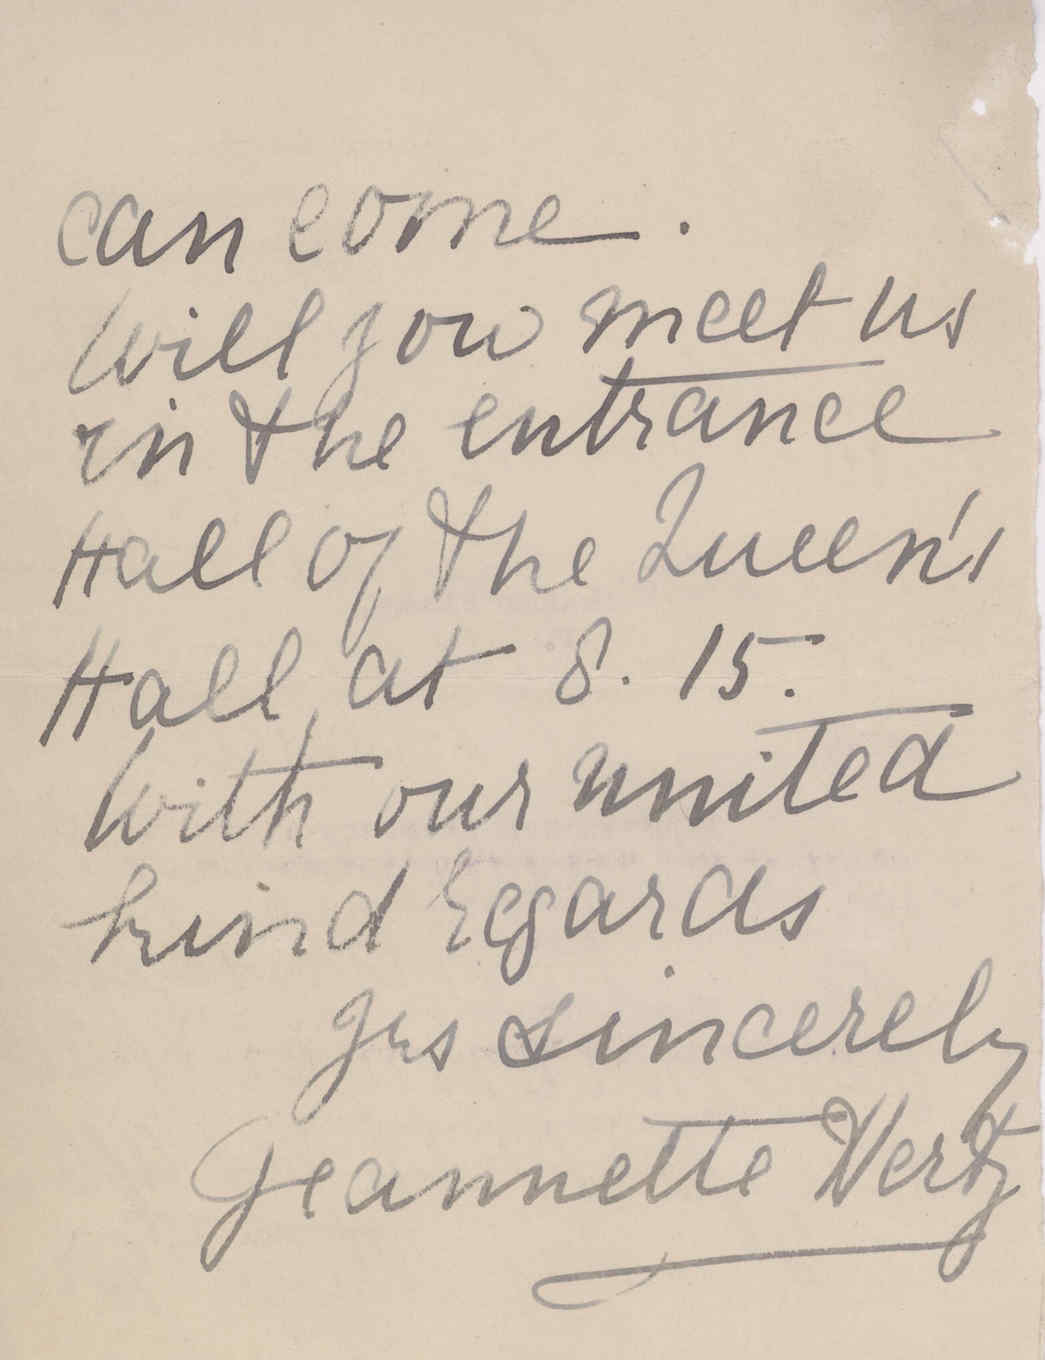 can come.
Will you meet us
in the entrance
Hall of the Queen's
Hall, at 8.15.
With our united
kind regards
yrs sincerely
Jeannette Hertz